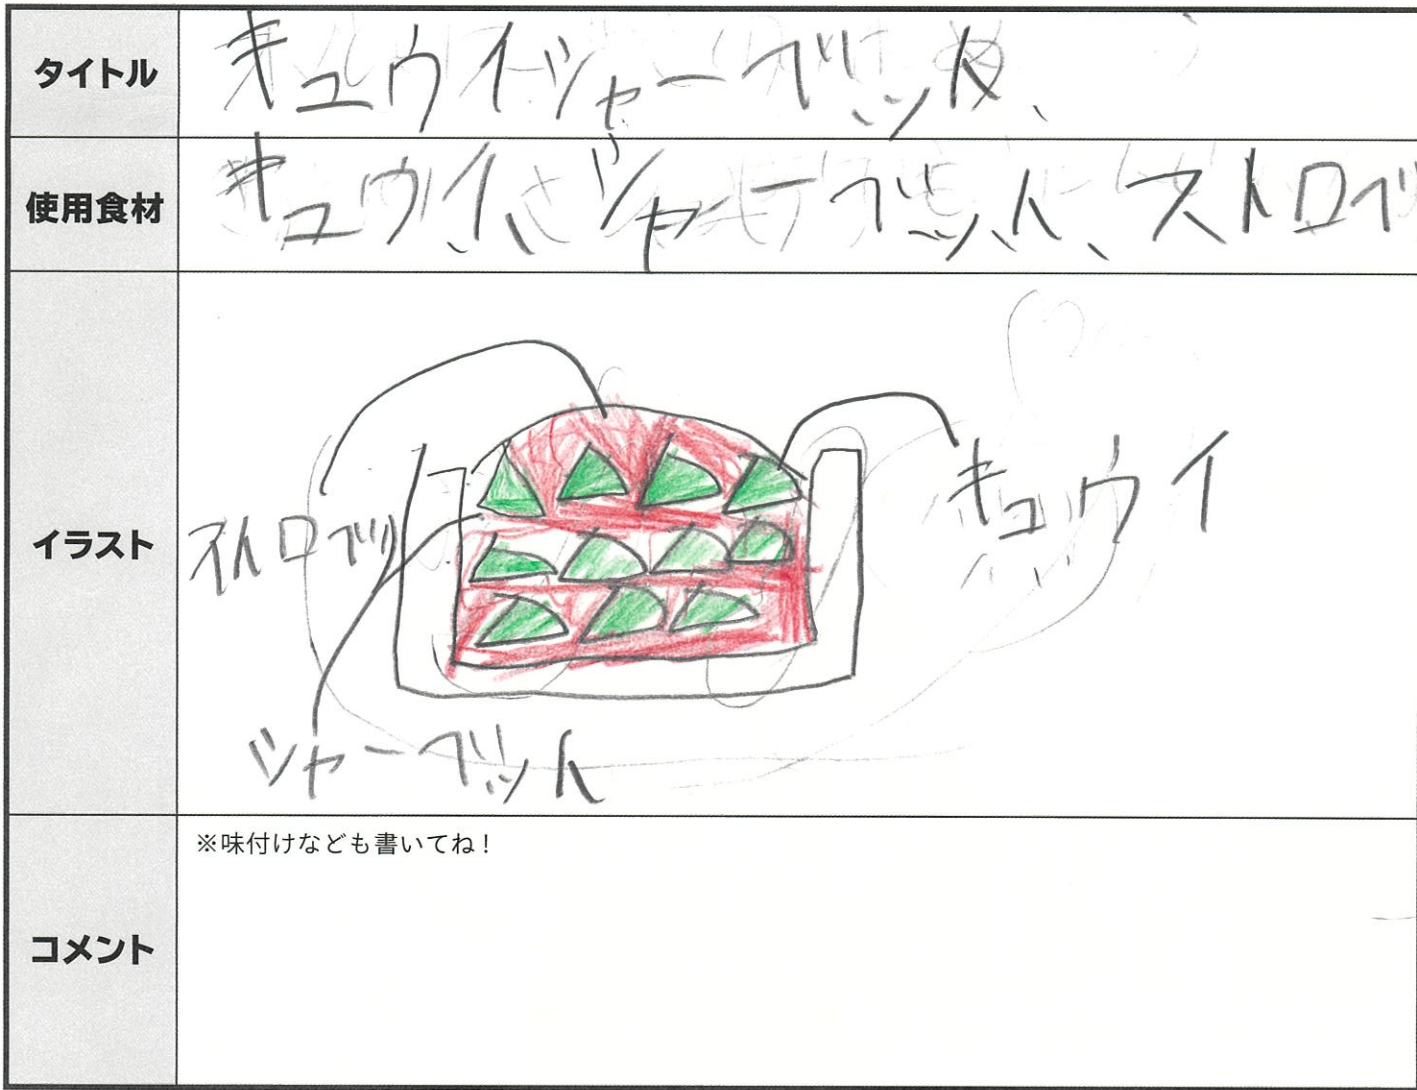 タイトル
キュウイシャーベット
使用食材
キュウイ、シャーベット、ストロベ
イラスト
キュウイ
ストロベリ
シャーベット
コメント
※味付けなども書いてね！